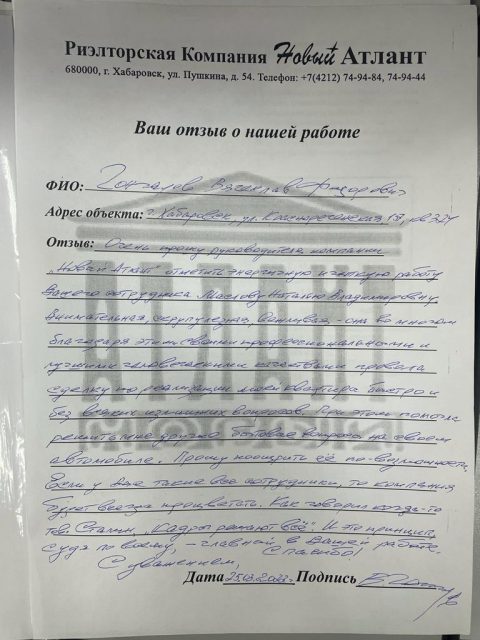 Риэлторская Компания Новый Атлант
680000, г. Хабаровск, ул. Пушкина, д. 54. Телефон: +7(4212) 74-94-84, 74-94-44
Ваш отзыв о нашей работе
ФИО: Вячеслав Федорович
Адрес объекта: г. Хабаровск, ул. Краснореченская, кв 324
Отзыв: Очень прошу руководителя компании
„Новый Атлант" отметить энергичную и четкую работу
Вашего сотрудника Маслову Наталью Владимировну
Внимательная, скрупулезная, вежливая - она во многом
благодаря этим своим профессиональным и
лучшим человеческим качествам провела
сделку по реализации моей квартиры быстро и
без всяких излишних вопросов. При этом помогла
решить мне другие бытовые вопросы на своем
автомобиле. Прошу поощрить её по-возможности.
Если у Вас такие все сотрудники, то компания
будет всегда процветать. Как говорил когда-то
тов. Сталин, „Кадры решают всё". И это принцип,
судя по всему, - главный в Вашей работе.
Спасибо!
С уважением,
Дата Подпись